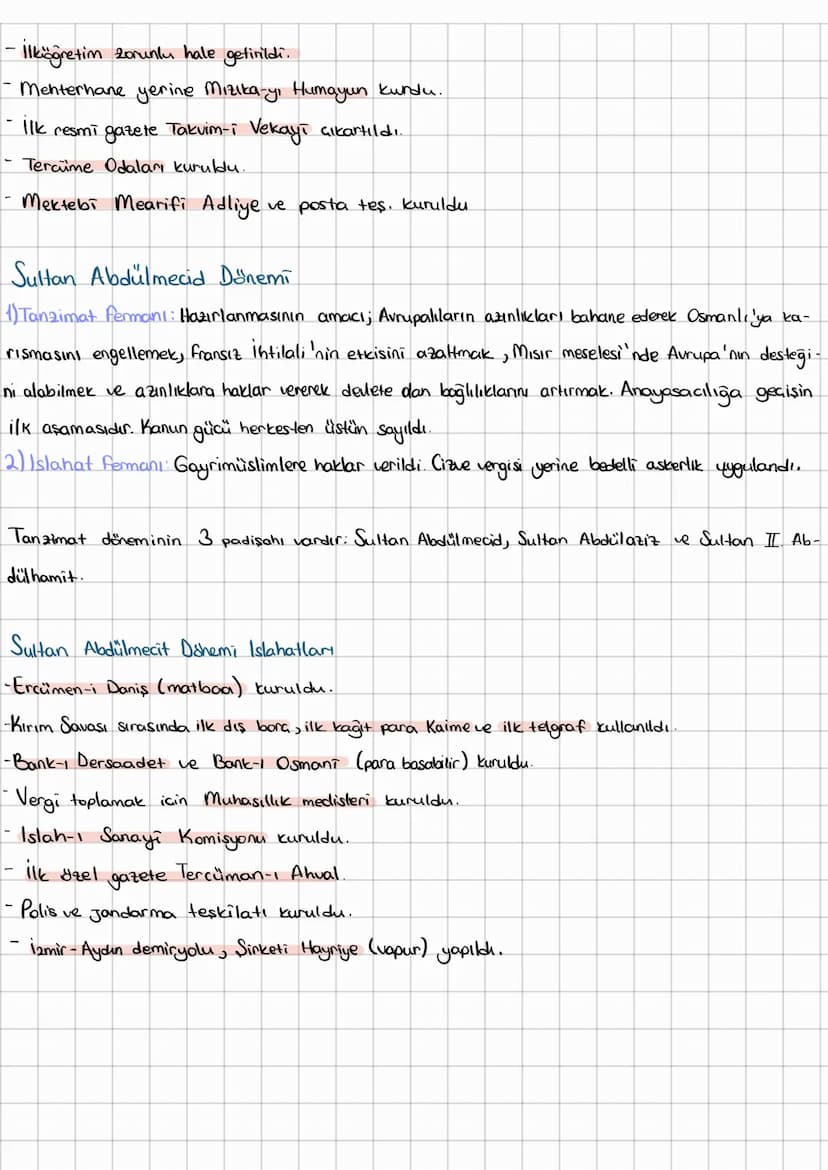 - İlköğretim zorunlu hale getirildi.
- Mehterhane yerine Mızıka-yı Humayun kurdu.
- İlk resmi gazete Takvim-i Vekayi çıkartıldı.
- Tercüme Odaları kuruldu.
- Mektebi Mearifi Adliye ve posta teş. kuruldu
Sultan Abdülmecid Dönemi
1) Tanzimat Fermanı: Hazırlanmasının amacı; Avrupalıların azınlıkları bahane ederek Osmanlı'ya ka-
rısmasını engellemek, Fransız İhtilali'nin etkisini azaltmak, Mısır meselesi'nde Avrupa'nın desteği-
ni alabilmek ve azınlıklara haklar vererek devlete olan bağlılıklarını artırmak. Anayasacılığa geçişin
ilk aşamasıdır. Kanun gücü herkesten üstün sayıldı.
2) Islahat Fermanı: Gayrimüslimlere haklar verildi. Cizye vergisi yerine bedelli askerlik uygulandı.
Tanzimat döneminin 3 padişahı vardır: Sultan Abdülmecid, Sultan Abdülaziz ve Sultan II. Ab-
dülhamit.
Sultan Abdülmecit Dönemi Islahatları
- Ercümen-i Daniş (matbaa) kuruldu.
- Kırım Savası sırasında ilk dış borç, ilk kağıt para Kaime ve ilk telgraf kullanıldı.
- Bank-ı Dersaadet ve Bank-ı Osmani (para basabilir) kuruldu.
- Vergi toplamak için Muhasıllık meclisleri kuruldu.
- Islah-ı Sanayi Komisyonu kuruldu.
- İlk özel gazete Tercüman-ı Ahval.
- Polis ve jandarma teşkilatı kuruldu.
- İzmir-Aydın demiryolu, Şirketi Hayriye (vapur) yapıldı.